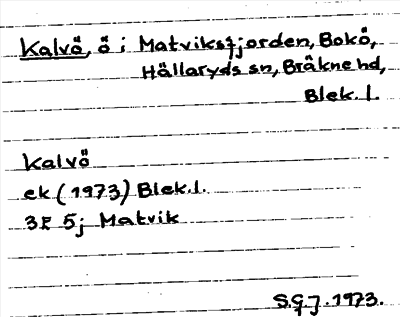 Kalvö, ö i Matviksfjorden, Bokö,
Hällaryds sn, Bräkne hd,
Blek. l.
Kalvö
ek (1973) Blek. l.
3F 5j Matvik
S.G.J. 1973.